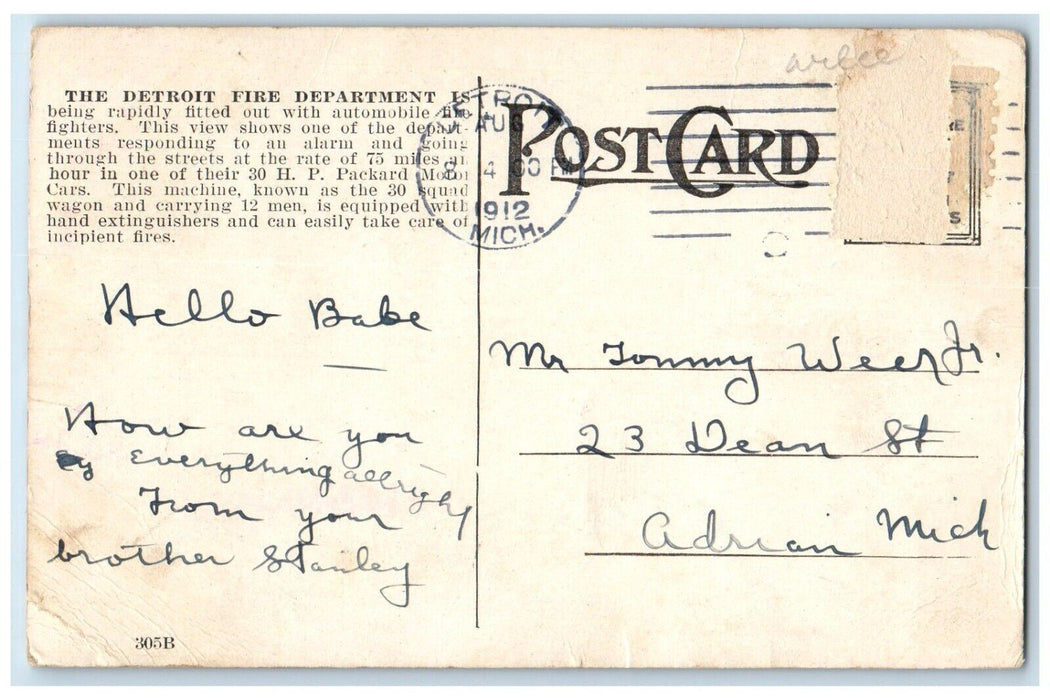 THE DETROIT FIRE DEPARTMENT IS
being rapidly fitted out with automobile fire
fighters. This view shows one of the depart-
ments responding to an alarm and going
through the streets at the rate of 75 miles an
hour in one of their 30 H. P. Packard Motor
Cars. This machine, known as the 30 squad
wagon and carrying 12 men, is equipped with
hand extinguishers and can easily take care of
incipient fires.
DETROIT
AUG
4 30 PM
1912
MICH.
POST CARD
Hello Babe
How are you
everything allright
From your
brother Stanley
305B
Mr Tommy Weer Jr.
23 Dean St
Adrian Mich